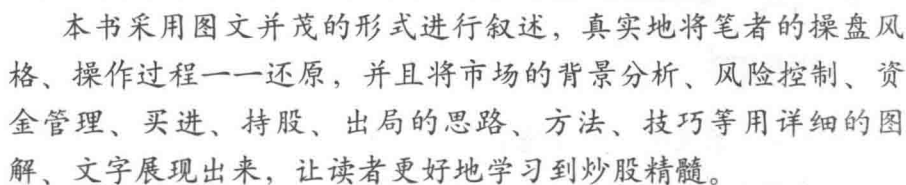 本书采用图文并茂的形式进行叙述，真实地将笔者的操盘风
格、操作过程一一还原，并且将市场的背景分析、风险控制、资
金管理、买进、持股、出局的思路、方法、技巧等用详细的图
解、文字展现出来，让读者更好地学习到炒股精髓。